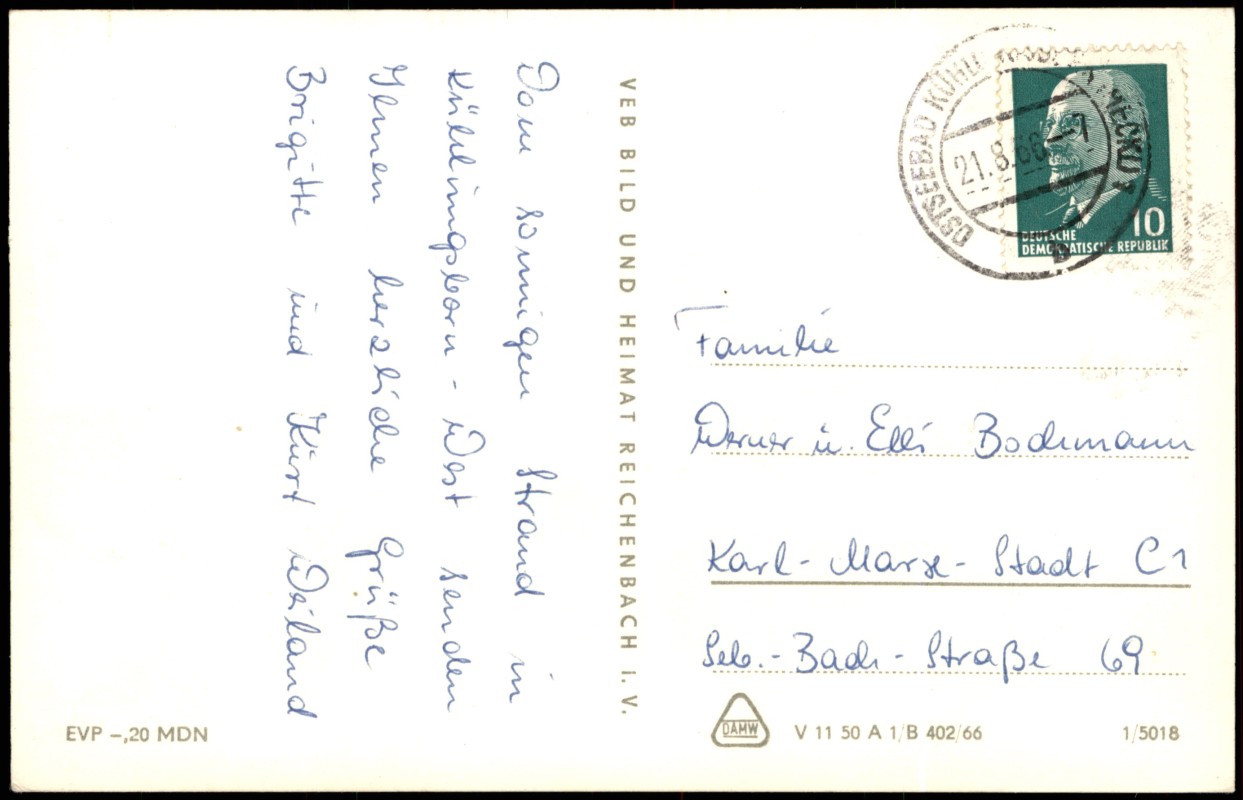 Vom sonnigen Strand in
Kühlungsborn-West senden
Ihnen herzliche Grüße
Brigitte und Kurt Weiland
VEB BILD UND HEIMAT REICHENBACH I. V.
OSTSEEBAD KÜHLUNGSBORN (MECKL)
21.8.66-7
b
10
DEUTSCHE
DEMOKRATISCHE REPUBLIK
Familie
Werner u. Elli Bochmann
Karl-Marx-Stadt C1
Seb.-Bach-Straße 69
EVP -,20 MDN
DAMW
V 11 50 A 1/B 402/66
1/5018